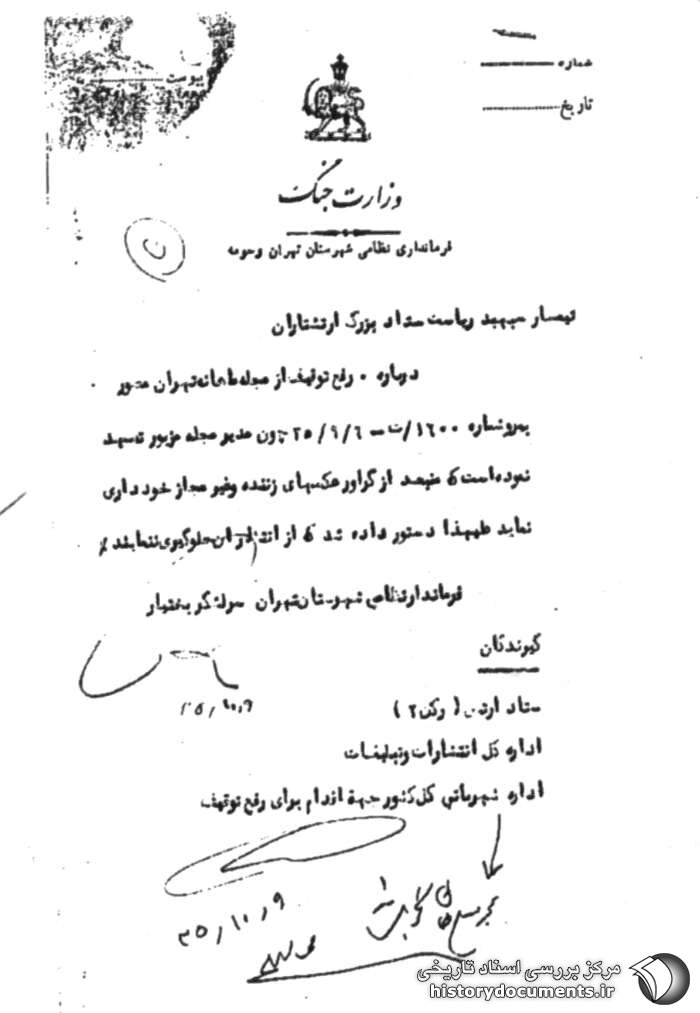 شماره
تاریخ
پیوست
وزارت جنگ
فرمانداری نظامی شهرستان تهران و حومه
تیمسار سپهبد ریاست ستاد بزرگ ارتشتاران
درباره . رفع توقیف از مجله ماهانه تهران مصور
پیرو شماره ۱۶۰۰/ت – ۲۵/۹/۶ چون مدیر مجله مزبور تعهد
نموده است که منبعد از گراور عکسهای زننده و غیر مجاز خودداری
نماید علیهذا دستور داده شد که از انتشار آن جلوگیری ننمایند
فرماندار نظامی شهرستان تهران سرلشگر بختیار
۲۵/۱۰/۹
گیرندگان
ستاد ارتش (رکن ۲)
اداره کل انتشارات و تبلیغات
اداره شهربانی کل کشور جهة اقدام برای رفع توقیف
۲۵/۱۰/۹
مرکز بررسی اسناد تاریخی
historydocuments.ir